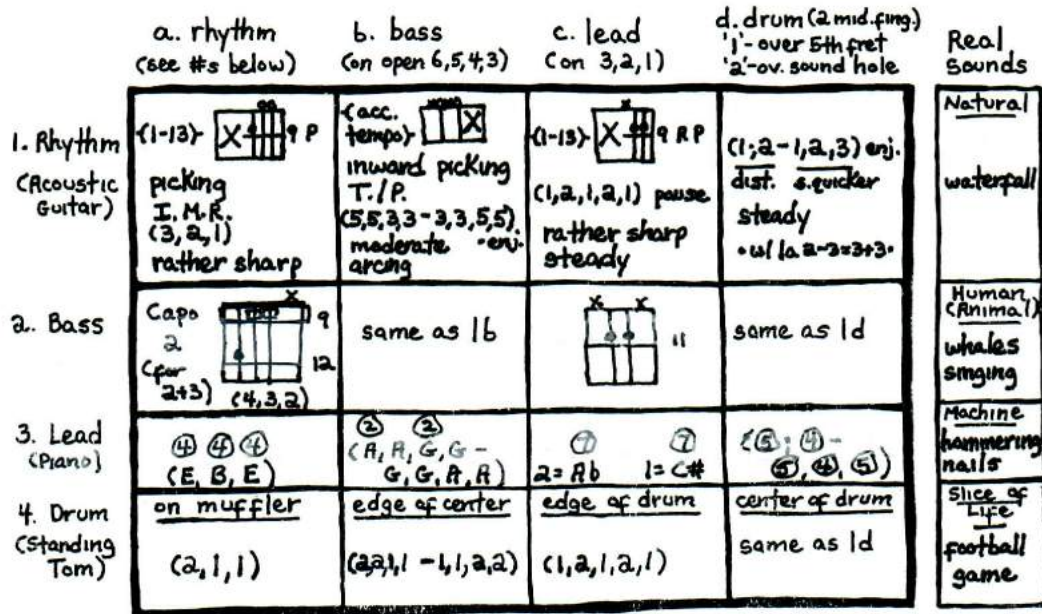 a. rhythm
(see #s below)
b. bass
(on open 6,5,4,3)
c. lead
(on 3,2,1)
d. drum (2 mid. fing.)
'1'-over 5th fret
'2'-ov. sound hole
Real
Sounds
1. Rhythm
(Acoustic
Guitar)
(1-13)
X
9 P
picking
I. M. R.
(3,2,1)
rather sharp
(acc.
tempo)
X
inward picking
T./P.
(5,5,3,3 - 3,3,5,5)
moderate -enj.
arcing
(1-13)
x
X
9 R P
(1,2,1,2,1) pause
rather sharp
steady
(1;2-1,2,3) enj.
dist. s.quicker
steady
• w/ 1a 2-3=3+3•
Natural
waterfall
2. Bass
Capo
2
(for
2+3)
x
9
12
(4,3,2)
same as 1b
x x
11
same as 1d
Human,
(Animal)
whales
singing
3. Lead
(Piano)
4 4 4
(E, B, E)
2 2
(A, A, G, G -
G, G, A, A)
7 7
2=Ab 1=C#
(5; 4 -
5, 4, 5)
Machine
hammering
nails
4. Drum
(Standing
Tom)
on muffler
(2,1,1)
edge of center
(2,2,1,1 -1,1,2,2)
edge of drum
(1,2,1,2,1)
center of drum
same as 1d
Slice of
Life
football
game